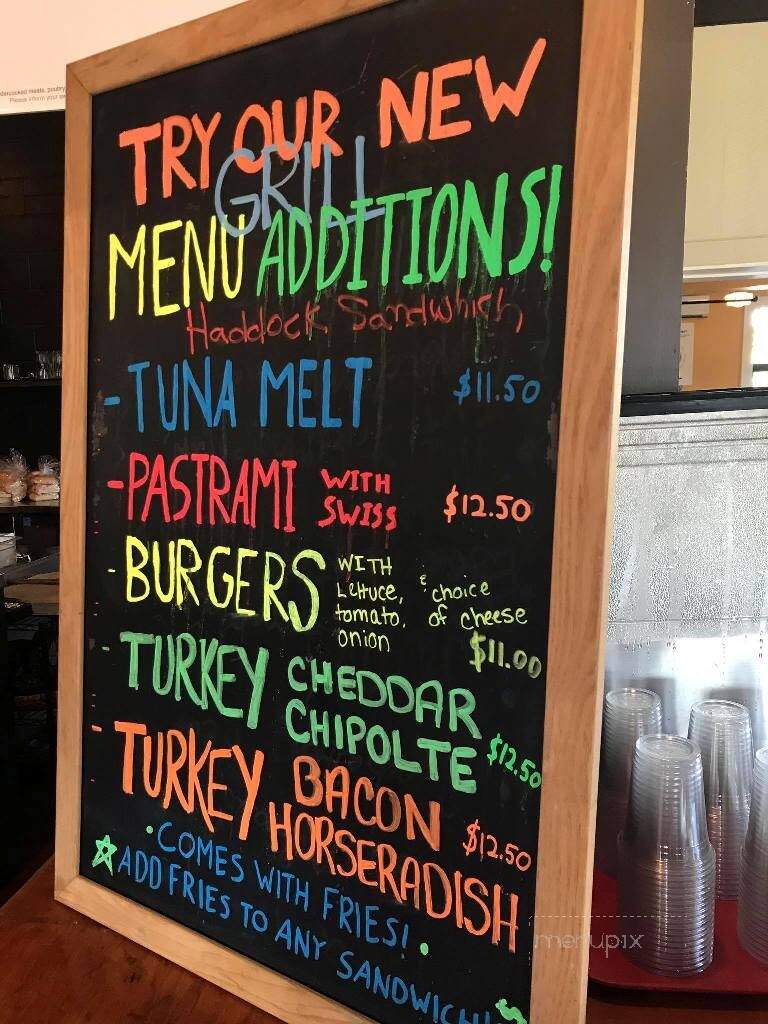 TRY OUR NEW
GRILL
MENU ADDITIONS!
Haddock Sandwhich
- TUNA MELT $11.50
- PASTRAMI WITH SWISS $12.50
- BURGERS WITH Lettuce, tomato, onion & choice of cheese $11.00
- TURKEY CHEDDAR CHIPOLTE $12.50
- TURKEY BACON HORSERADISH $12.50
• COMES WITH FRIES! •
ADD FRIES TO ANY SANDWICH!
menupix